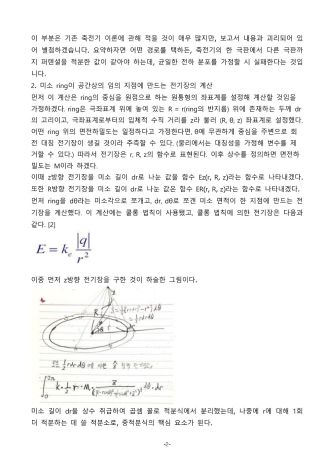 이 부분은 기존 축전기 이론에 관해 적을 것이 매우 많지만, 보고서 내용과 괴리되어 있
어 별첨하겠습니다. 요약하자면 어떤 경로를 택하든, 축전기의 한 극판에서 다른 극판까
지 퍼텐셜을 적분한 값이 같아야 하는데, 균일한 전하 분포를 가정할 시 실패한다는 것입
니다.
2. 미소 ring이 공간상의 임의 지점에 만드는 전기장의 계산
먼저 이 계산은 ring의 중심을 원점으로 하는 원통형의 좌표계를 설정해 계산할 것임을
가정하겠다. ring은 극좌표계 위에 놓여 있는 R = r(ring의 반지름) 위에 존재하는 두께 dr
의 고리이고, 극좌표계로부터의 입체적 수직 거리를 z라 불러 (R, θ, z) 좌표계로 설정했다.
어떤 링 위의 면전하밀도는 일정하다고 가정한다면, θ에 무관하게 중심을 주변으로 회
전 대칭 전기장이 생길 것이라 추측할 수 있다. (물리에서는 대칭성을 가정해 변수를 제
거할 수 있다.) 따라서 전기장은 r, R, z의 함수로 표현된다. 이후 상수를 정의하면 면전하
밀도는 M이라 하겠다.
이때 z방향 전기장을 미소 길이 dr로 나눈 값을 함수 Ez(r, R, z)라는 함수로 나타내겠다.
또한 R방향 전기장을 미소 길이 dr로 나눈 값은 함수 ER(r, R, z)라는 함수로 나타내겠다.
먼저 ring을 dθ라는 미소각으로 쪼개고, dr, dθ로 쪼갠 미소 면적이 한 지점에 만드는 전
기장을 계산했다. 이 계산에는 쿨롱 법칙이 사용됐고, 쿨롱 법칙에 의한 전기장은 다음과
같다. [2]
E = kₑ |q| / r²
이중 먼저 z방향 전기장을 구한 것이 하술한 그림이다.
미소 길이 dr을 상수 취급하여 곱셈 꼴로 적분식에서 분리했는데, 나중에 r에 대해 1회
더 적분하는 데 쓸 적분소로, 중적분식의 핵심 요소가 된다.
-2-